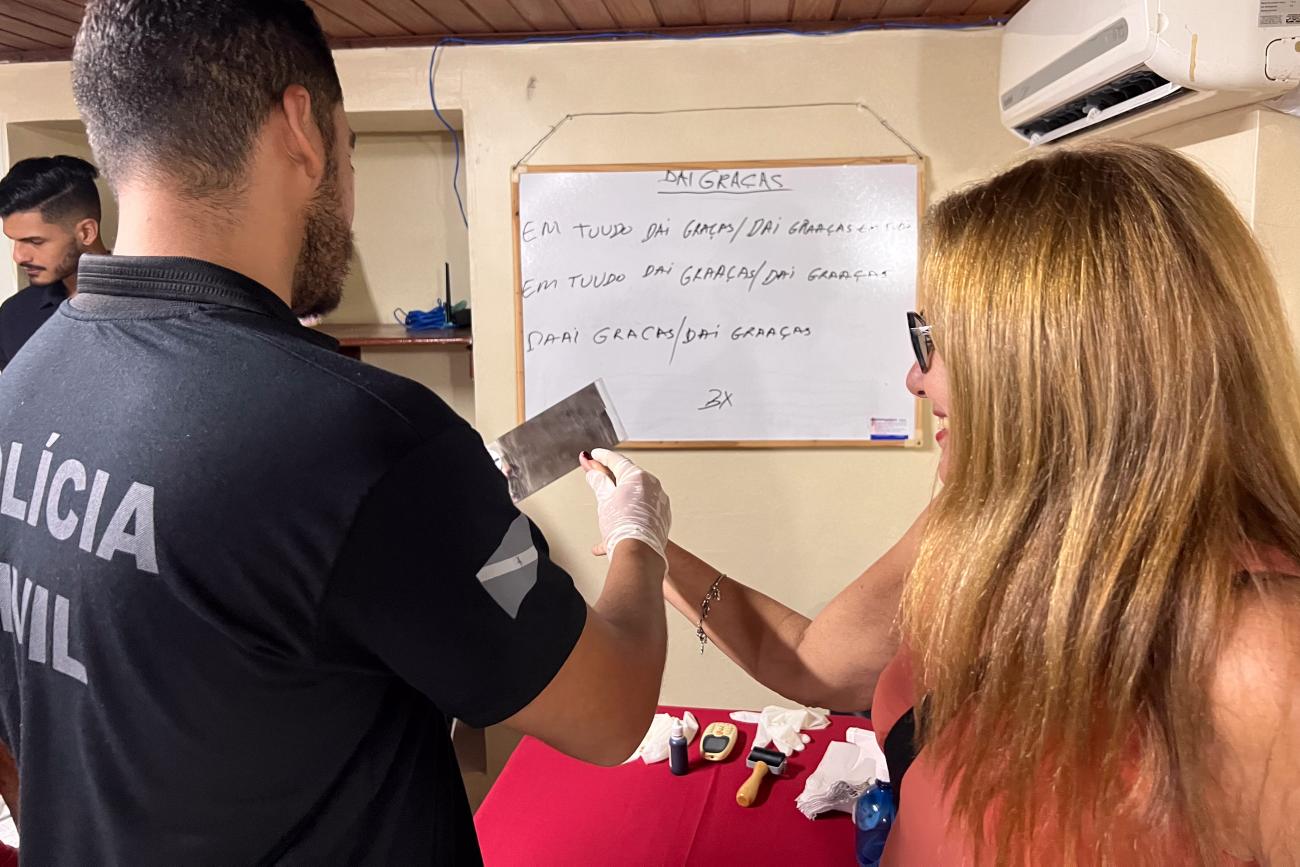 DAI GRAÇAS
EM TUUDO DAI GRAÇAS/DAI GRAAÇAS EM TUDO
EM TUUDO DAI GRAAÇAS/DAI GRAAÇAS
DAAI GRACAS/DAI GRAAÇAS
3X
OLÍCIA
IVIL